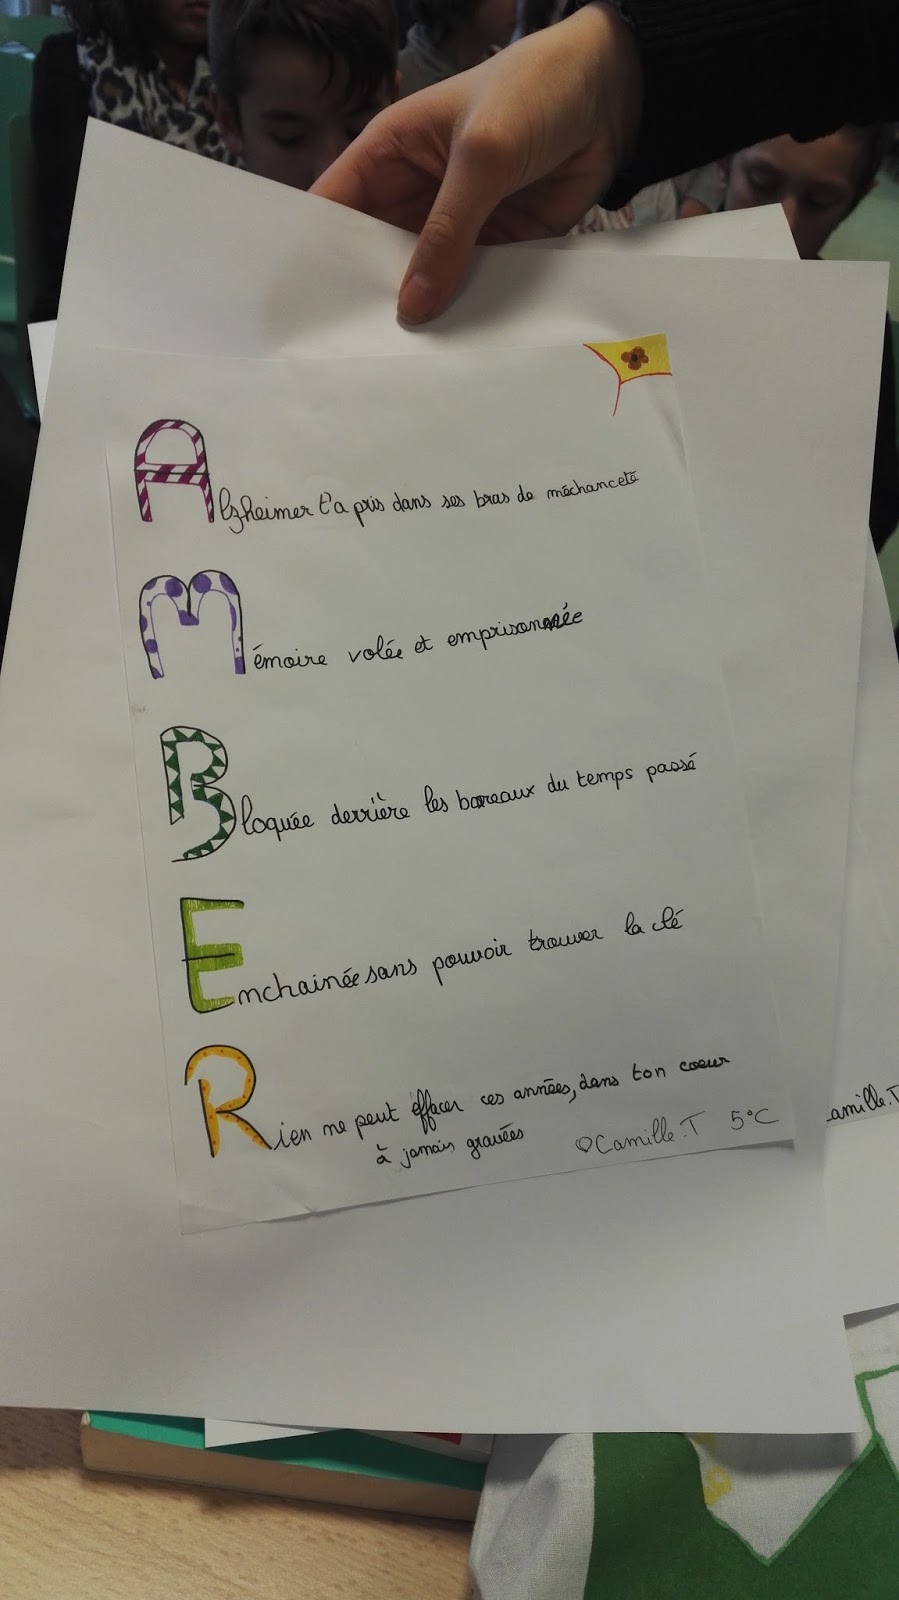 Alzheimer t'a pris dans ses bras de méchanceté
Mémoire volée et emprisonnée
Bloquée derrière les bareaux du temps passé
Enchainée sans pouvoir trouver la clé
Rien ne peut effacer ces années, dans ton coeur
à jamais gravées
♡Camille.T 5°C
Camille.T